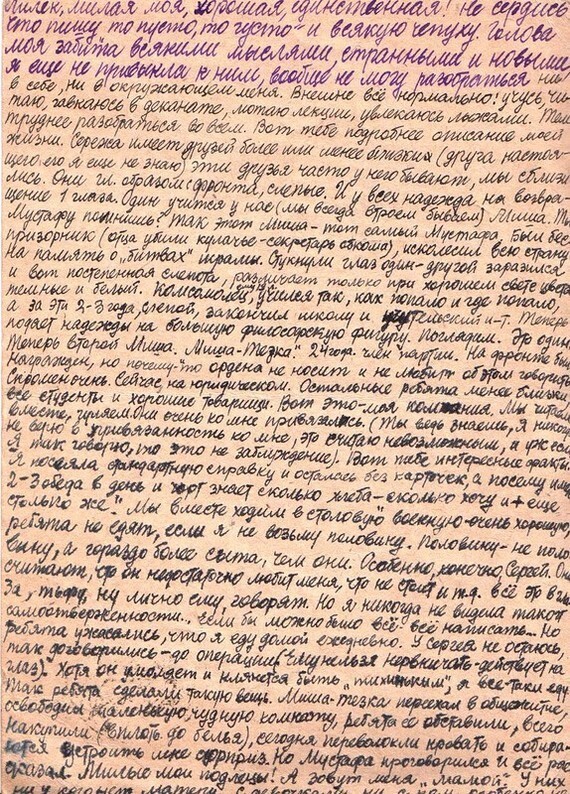 милая моя, хорошая, единственная! Не сердись
что пишу то пусто, то густо и всякую чепуху. Голова
моя забита всякими мыслями, странными и новыми,
я еще не привыкла к ним, вообще не могу разобраться ни
в себе, ни в окружающем меня. Внешне всё нормально: учусь, чи-
таю, завкаюсь в деканате, мотаю лекции, увлекаюсь лыжами. Тем
труднее разобраться во всем. Вот тебе подробное описание моей
жизни. Сережа имеет друзей более или менее близких (друга настоя-
щего его я еще не знаю) эти друзья часто у него бывают, мы сблизи-
лись. Они гл. образом с фронта, слепые. И у всех надежда на возвра-
щение 1 глаза. Один учится у нас (мы всегда втроем бываем) Миша.
Мустафу помнишь? Так этот Миша - тот самый Мустафа. Был бес-
призорник (отца убили кулачье - секретарь обкома), исколесил всю страну
На память о "битвах" шрамы. Стукнули глаз один - другой заразился
и вот постепенная слепота, различает только при хорошем свете цвета
темные и белый. Комсомолец, учился так, как попало и где попало,
а за эти 2-3 года, слепой, закончил школу и учительский и-т. Теперь
подает надежды на большую философскую фигуру. Поглядим. Это один.
Теперь второй Миша. Миша-тезка. 24 года. член партии. На фронте был
награжден, но почему-то ордена не носит и не любит об этом говорить
Скромен очень. Сейчас на юридическом. Остальные ребята менее близки,
все студенты и хорошие товарищи. Вот это - моя компания. Мы читаем
вместе, гуляем. Они очень ко мне привязались. (Ты ведь знаешь, я никогда
не верю в привязанность ко мне, это считаю невозможным, и уж если
я так говорю, то это не заблуждение). Вот тебе интересные факты.
Я посеяла стандартную справку и осталась без карточек, а посему имею
2-3 обеда в день и черт знает сколько хлеба - сколько хочу и + еще
столько же". Мы вместе ходим в столовую военную - очень хорошую,
ребята не едят, если я не возьму половину. Половину - не поло-
вину, а гораздо более сыта, чем они. Особенно, конечно, Сергей. Они
считают, что он недостаточно любит меня, что не стоит и т.д. всё это в гла-
за, тьфу, ну лично ему, говорят. Но я никогда не видела такой
самоотверженности.. Если бы можно было всё, всё написать... Но
ребята ужасались, что я еду домой ежедневно. У Сергея не остаюсь,
так договорились - до операции (ему нельзя нервничать - действует на
глаз). Хотя он умоляет и клянется быть "тихоньким", я все-таки еду.
Так ребята сделали такую вещь. Миша-тезка переехал в общежитие,
освободил маленькую, чудную комнату, ребята её обставили, всего
накупили (вплоть до белья), сегодня переволокли кровать и собира-
ются устроить мне сюрприз. Но Мустафа проговорился и всё рас-
сказал. Милые мои подлецы! А зовут меня "мамой". У них